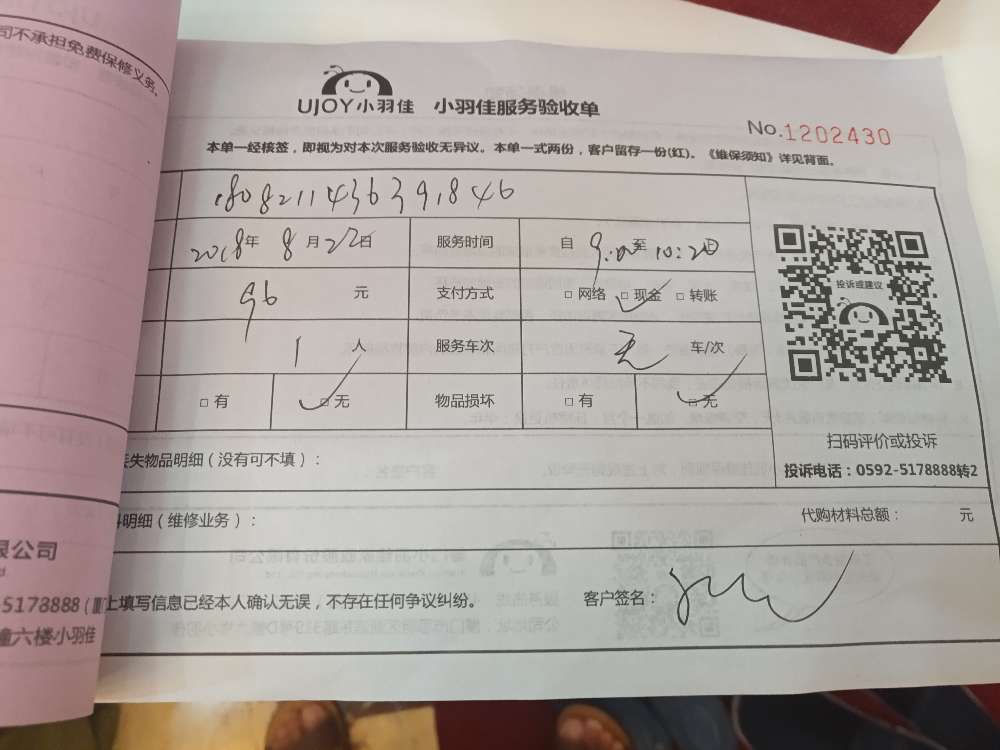 司不承担免费保修义务。
UJOY小羽佳 小羽佳服务验收单
No.1202430
本单一经核签，即视为对本次服务验收无异议。本单一式两份，客户留存一份(红)。《维保须知》详见背面。
2018年 8月22日 服务时间 自 9:00 至 10:20 止
96 元 支付方式 □网络 □现金 □转账
1 人 服务车次 无 车/次
□有 □无 物品损坏 □有 □无
投诉或建议
扫码评价或投诉
投诉电话：0592-5178888转2
丢失物品明细（没有可不填）：
料明细（维修业务）： 代购材料总额： 元
限公司
-5178888
上填写信息已经本人确认无误，不存在任何争议纠纷。 客户签名：
幢六楼小羽佳